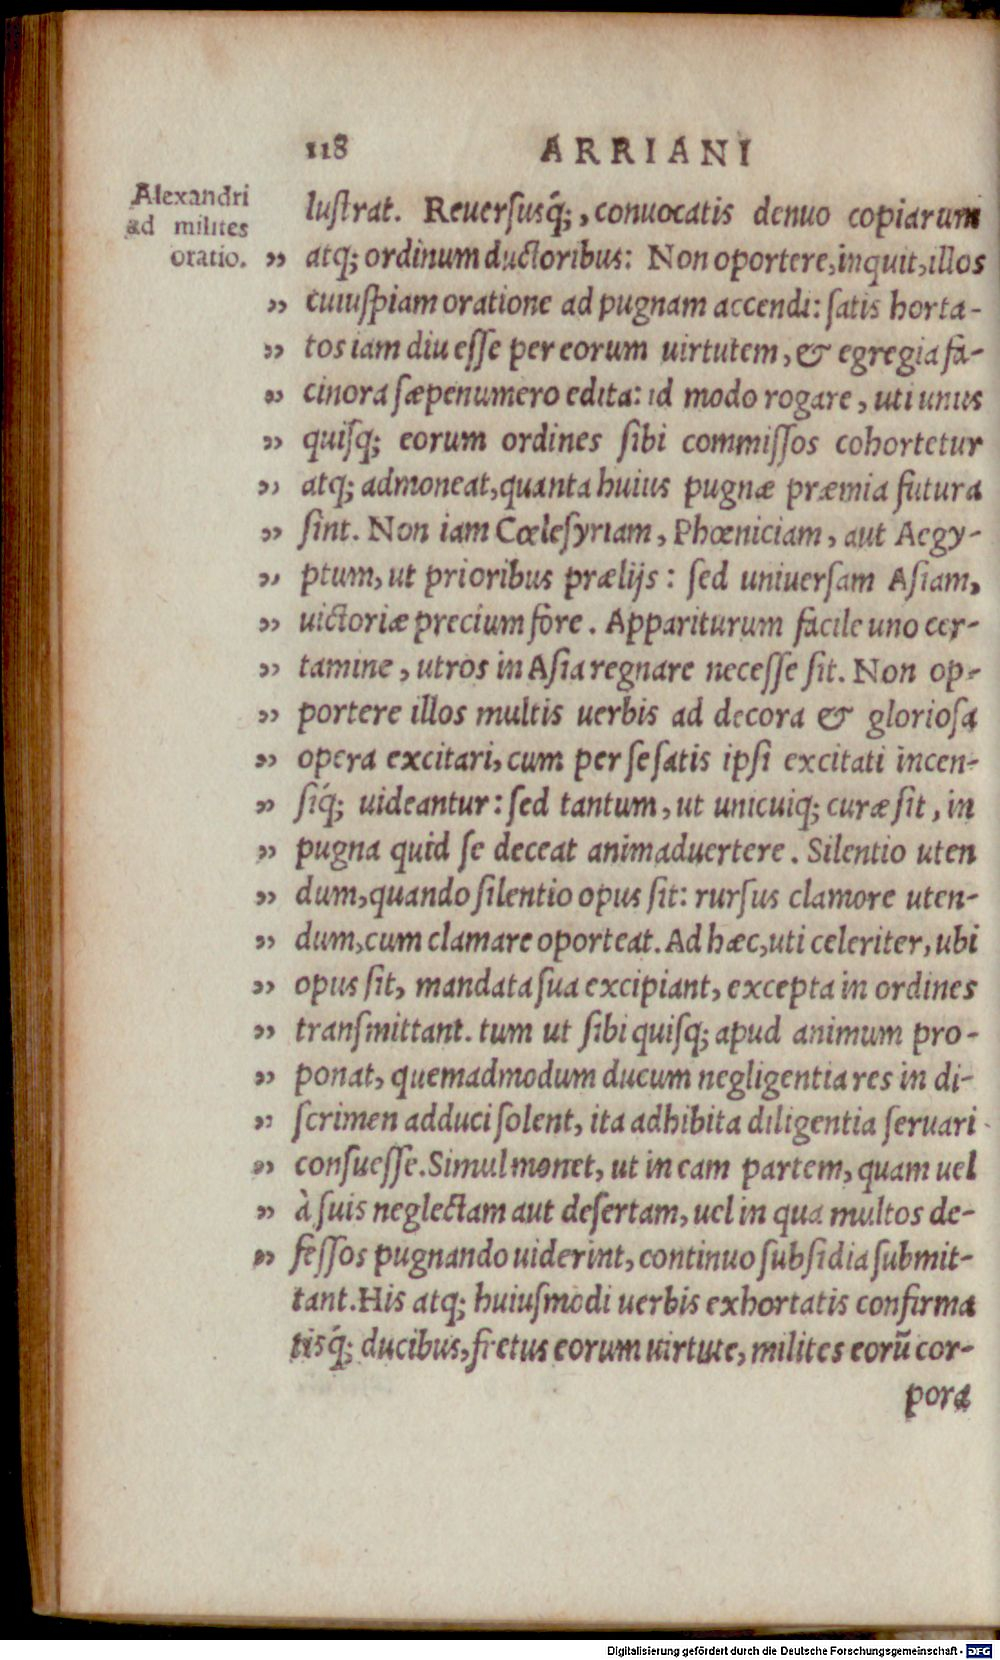 118 ARRIANI
Alexandri
ad milites
oratio.
luſtrat. Reuerſusq́;, conuocatis denuo copiarum
„ atq; ordinum ductoribus: Non oportere, inquit, illos
„ cuiuſpiam oratione ad pugnam accendi: ſatis horta-
„ tos iam diu eſſe per eorum uirtutem, & egregia fa-
„ cinora ſæpenumero edita: id modo rogare, uti unus
„ quiſq; eorum ordines ſibi commiſſos cohortetur
„ atq; admoneat, quanta huius pugnæ præmia futura
„ ſint. Non iam Cœleſyriam, Phœniciam, aut Aegy-
„ ptum, ut prioribus prælijs: ſed uniuerſam Aſiam,
„ uictoriæ precium fore. Appariturum facile uno cer-
„ tamine, utros in Aſia regnare neceſſe ſit. Non op-
„ portere illos multis uerbis ad decora & glorioſa
„ opera excitari, cum per ſe ſatis ipſi excitati incen-
„ ſiq́; uideantur: ſed tantum, ut unicuiq; curæ ſit, in
„ pugna quid ſe deceat animaduertere. Silentio uten
„ dum, quando ſilentio opus ſit: rurſus clamore uten-
„ dum, cum clamare oporteat. Ad hæc, uti celeriter, ubi
„ opus ſit, mandata ſua excipiant, excepta in ordines
„ tranſmittant. tum ut ſibi quiſq; apud animum pro-
„ ponat, quemadmodum ducum negligentia res in di-
„ ſcrimen adduci ſolent, ita adhibita diligentia ſeruari
„ conſueſſe. Simul monet, ut in eam partem, quam uel
„ à ſuis neglectam aut deſertam, uel in qua multos de-
„ feſſos pugnando uiderint, continuo ſubſidia ſubmit-
tant. His atq; huiuſmodi uerbis exhortatis confirma
tisq́; ducibus, fretus eorum uirtute, milites eorũ cor-
pora
Digitalisierung gefördert durch die Deutsche Forschungsgemeinschaft - DFG